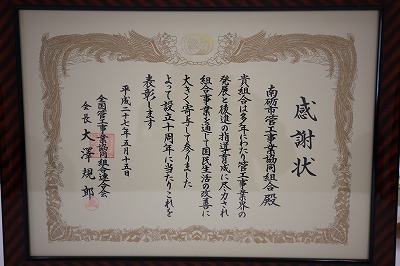 感謝状
南砺市管工事業協同組合 殿
貴組合は多年にわたり管工事業界の
発展と後進の指導育成に尽力され
組合事業を通して国民生活の改善に
大きく寄与して参りました
よって設立十周年に当たりこれを
表彰します
平成二十七年五月十五日
全国管工事業協同組合連合会
会長 大澤規郎